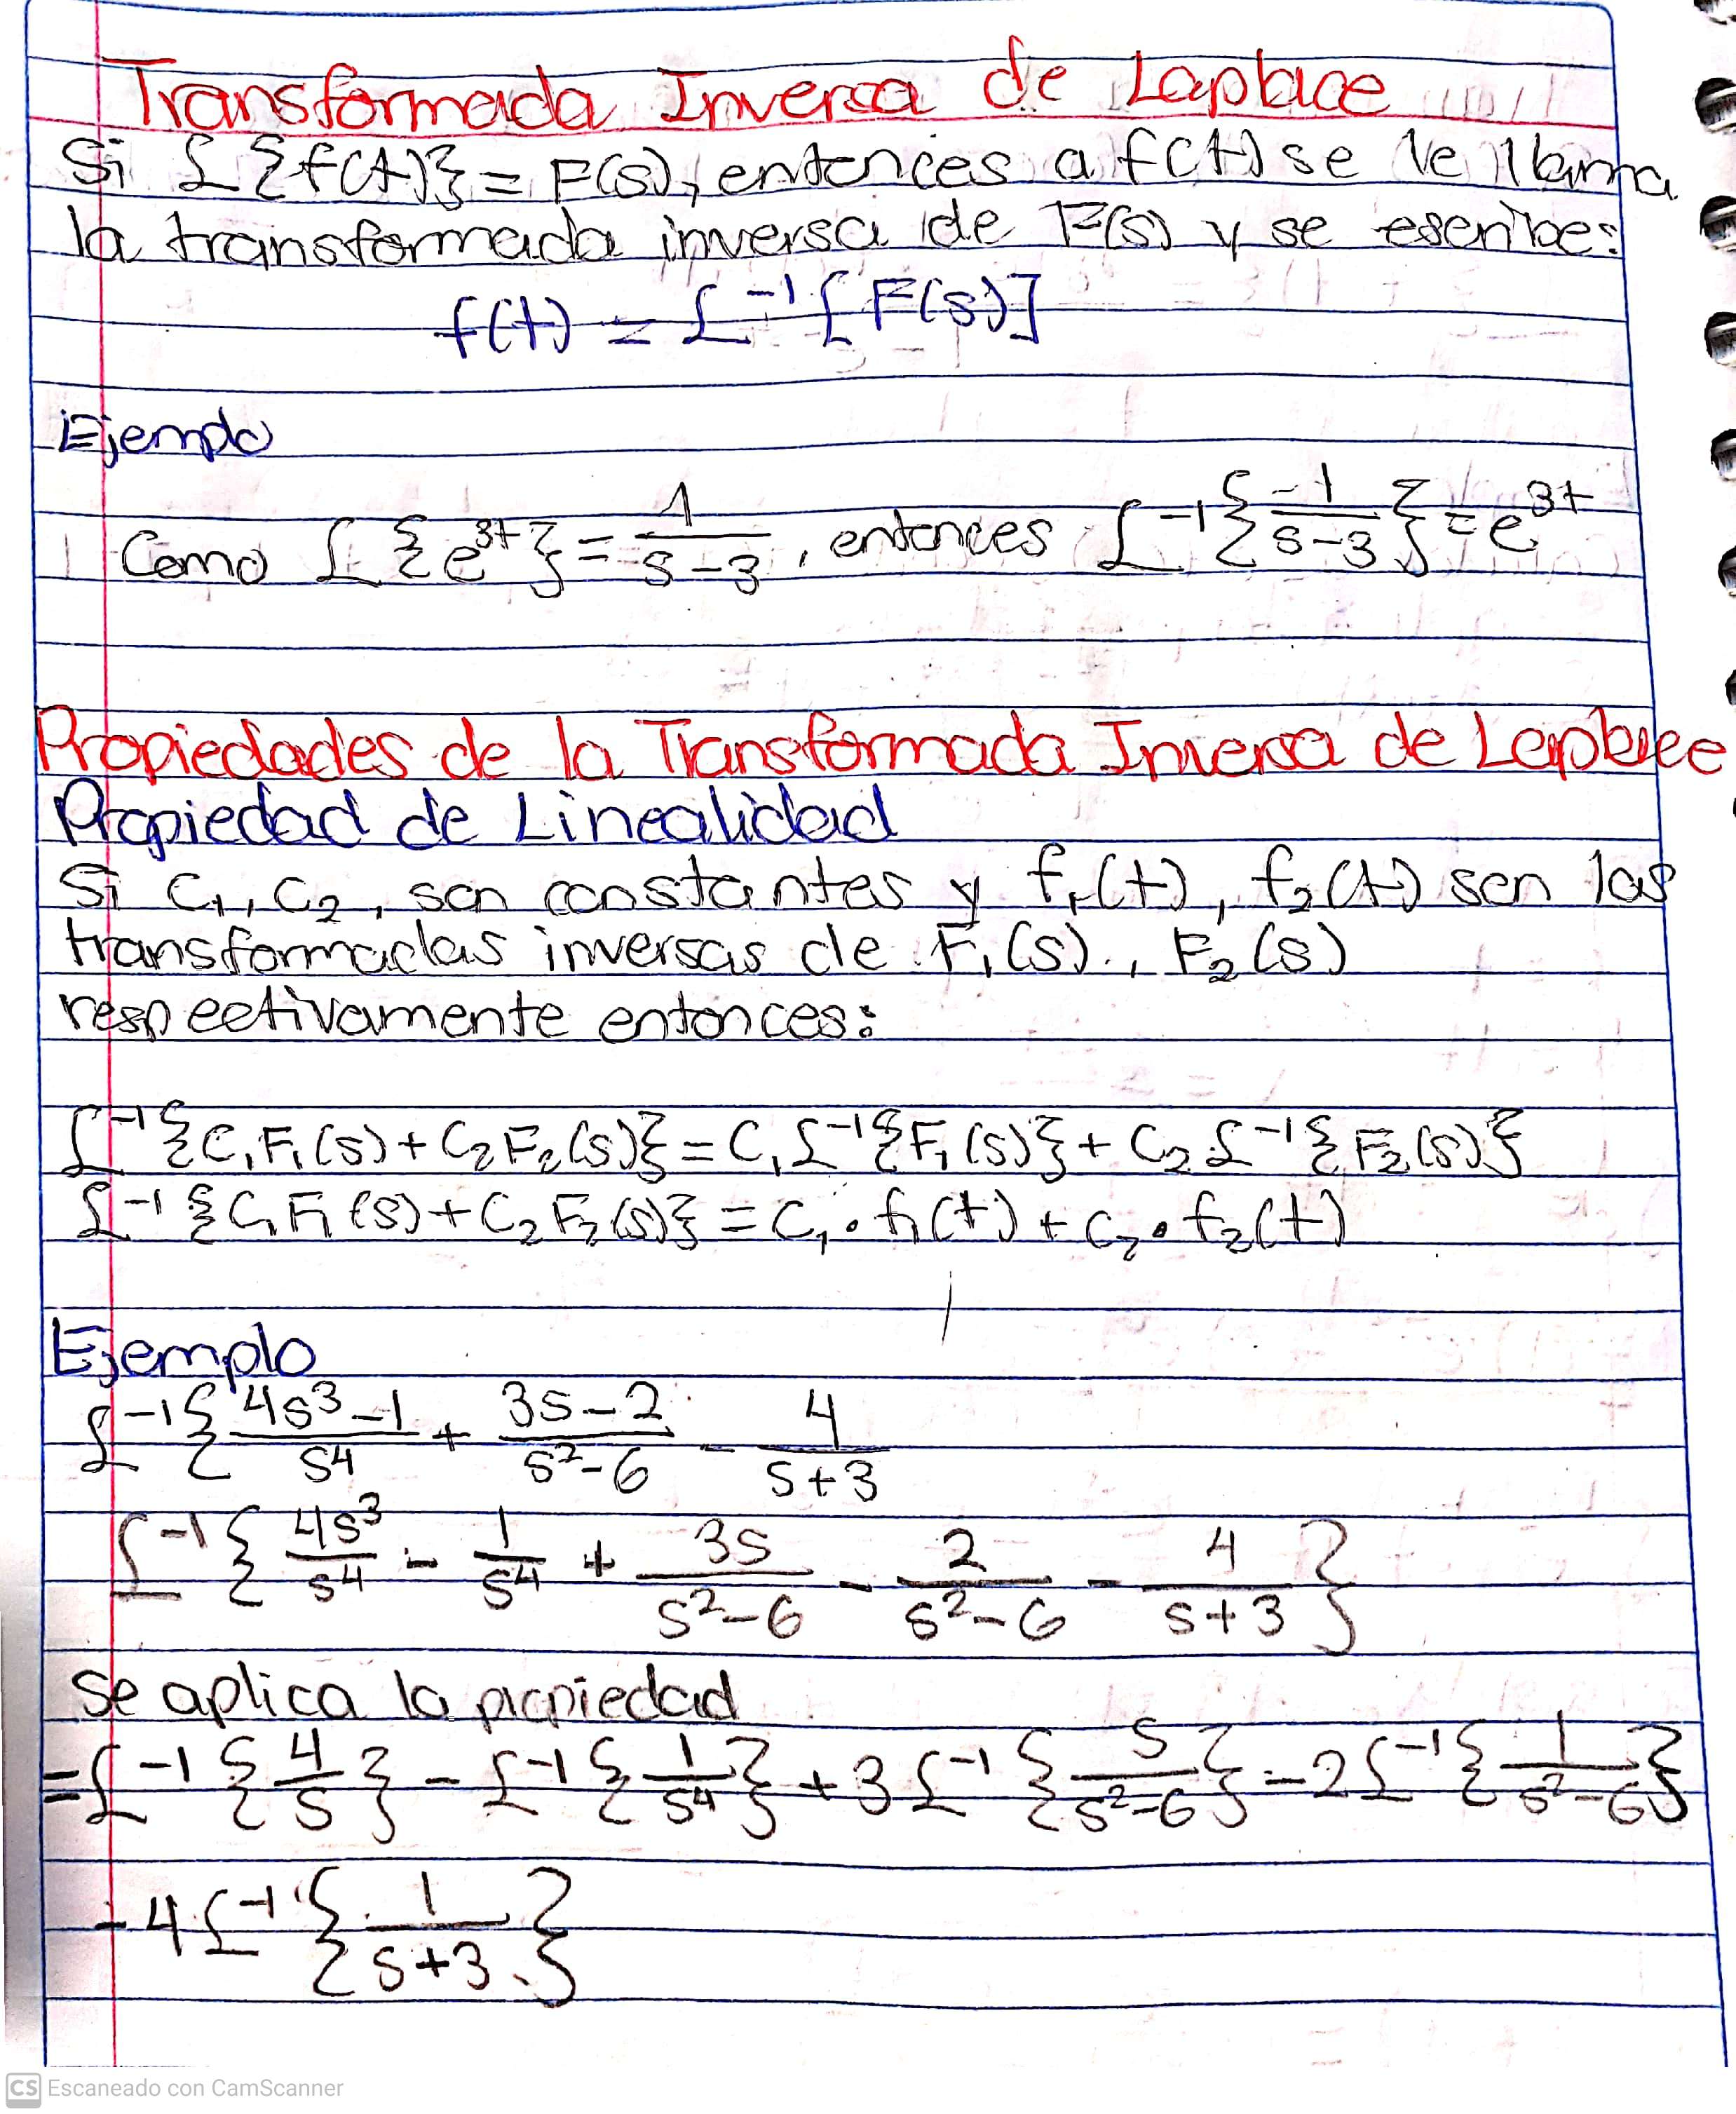 Transformada Inversa de Laplace
Si £{f(t)} = F(s), entonces a f(t) se le llama
la transformada inversa de F(s) y se escribe:
f(t) = £⁻¹[F(s)]
Ejemplo
Como £{e³ᵗ} = 1/(s-3), entonces £⁻¹{-1/(s-3)} = e³ᵗ
Propiedades de la Transformada Inversa de Laplace
Propiedad de Linealidad
Si C₁, C₂, son constantes y f₁(t), f₂(t) son las
transformadas inversas de F₁(s), F₂(s)
respectivamente entonces:
£⁻¹{C₁F₁(s) + C₂F₂(s)} = C₁£⁻¹{F₁(s)} + C₂£⁻¹{F₂(s)}
£⁻¹{C₁F₁(s) + C₂F₂(s)} = C₁•f₁(t) + C₂•f₂(t)
Ejemplo
£⁻¹{(4s³-1)/s⁴ + (3s-2)/(s²-6) - 4/(s+3)
£⁻¹{4s³/s⁴ - 1/s⁴ + 3s/(s²-6) - 2/(s²-6) - 4/(s+3)}
se aplica la propiedad
= £⁻¹{4/s} - £⁻¹{1/s⁴} + 3£⁻¹{s/(s²-6)} - 2£⁻¹{1/(s²-6)}
- 4£⁻¹{1/(s+3)}
CS Escaneado con CamScanner